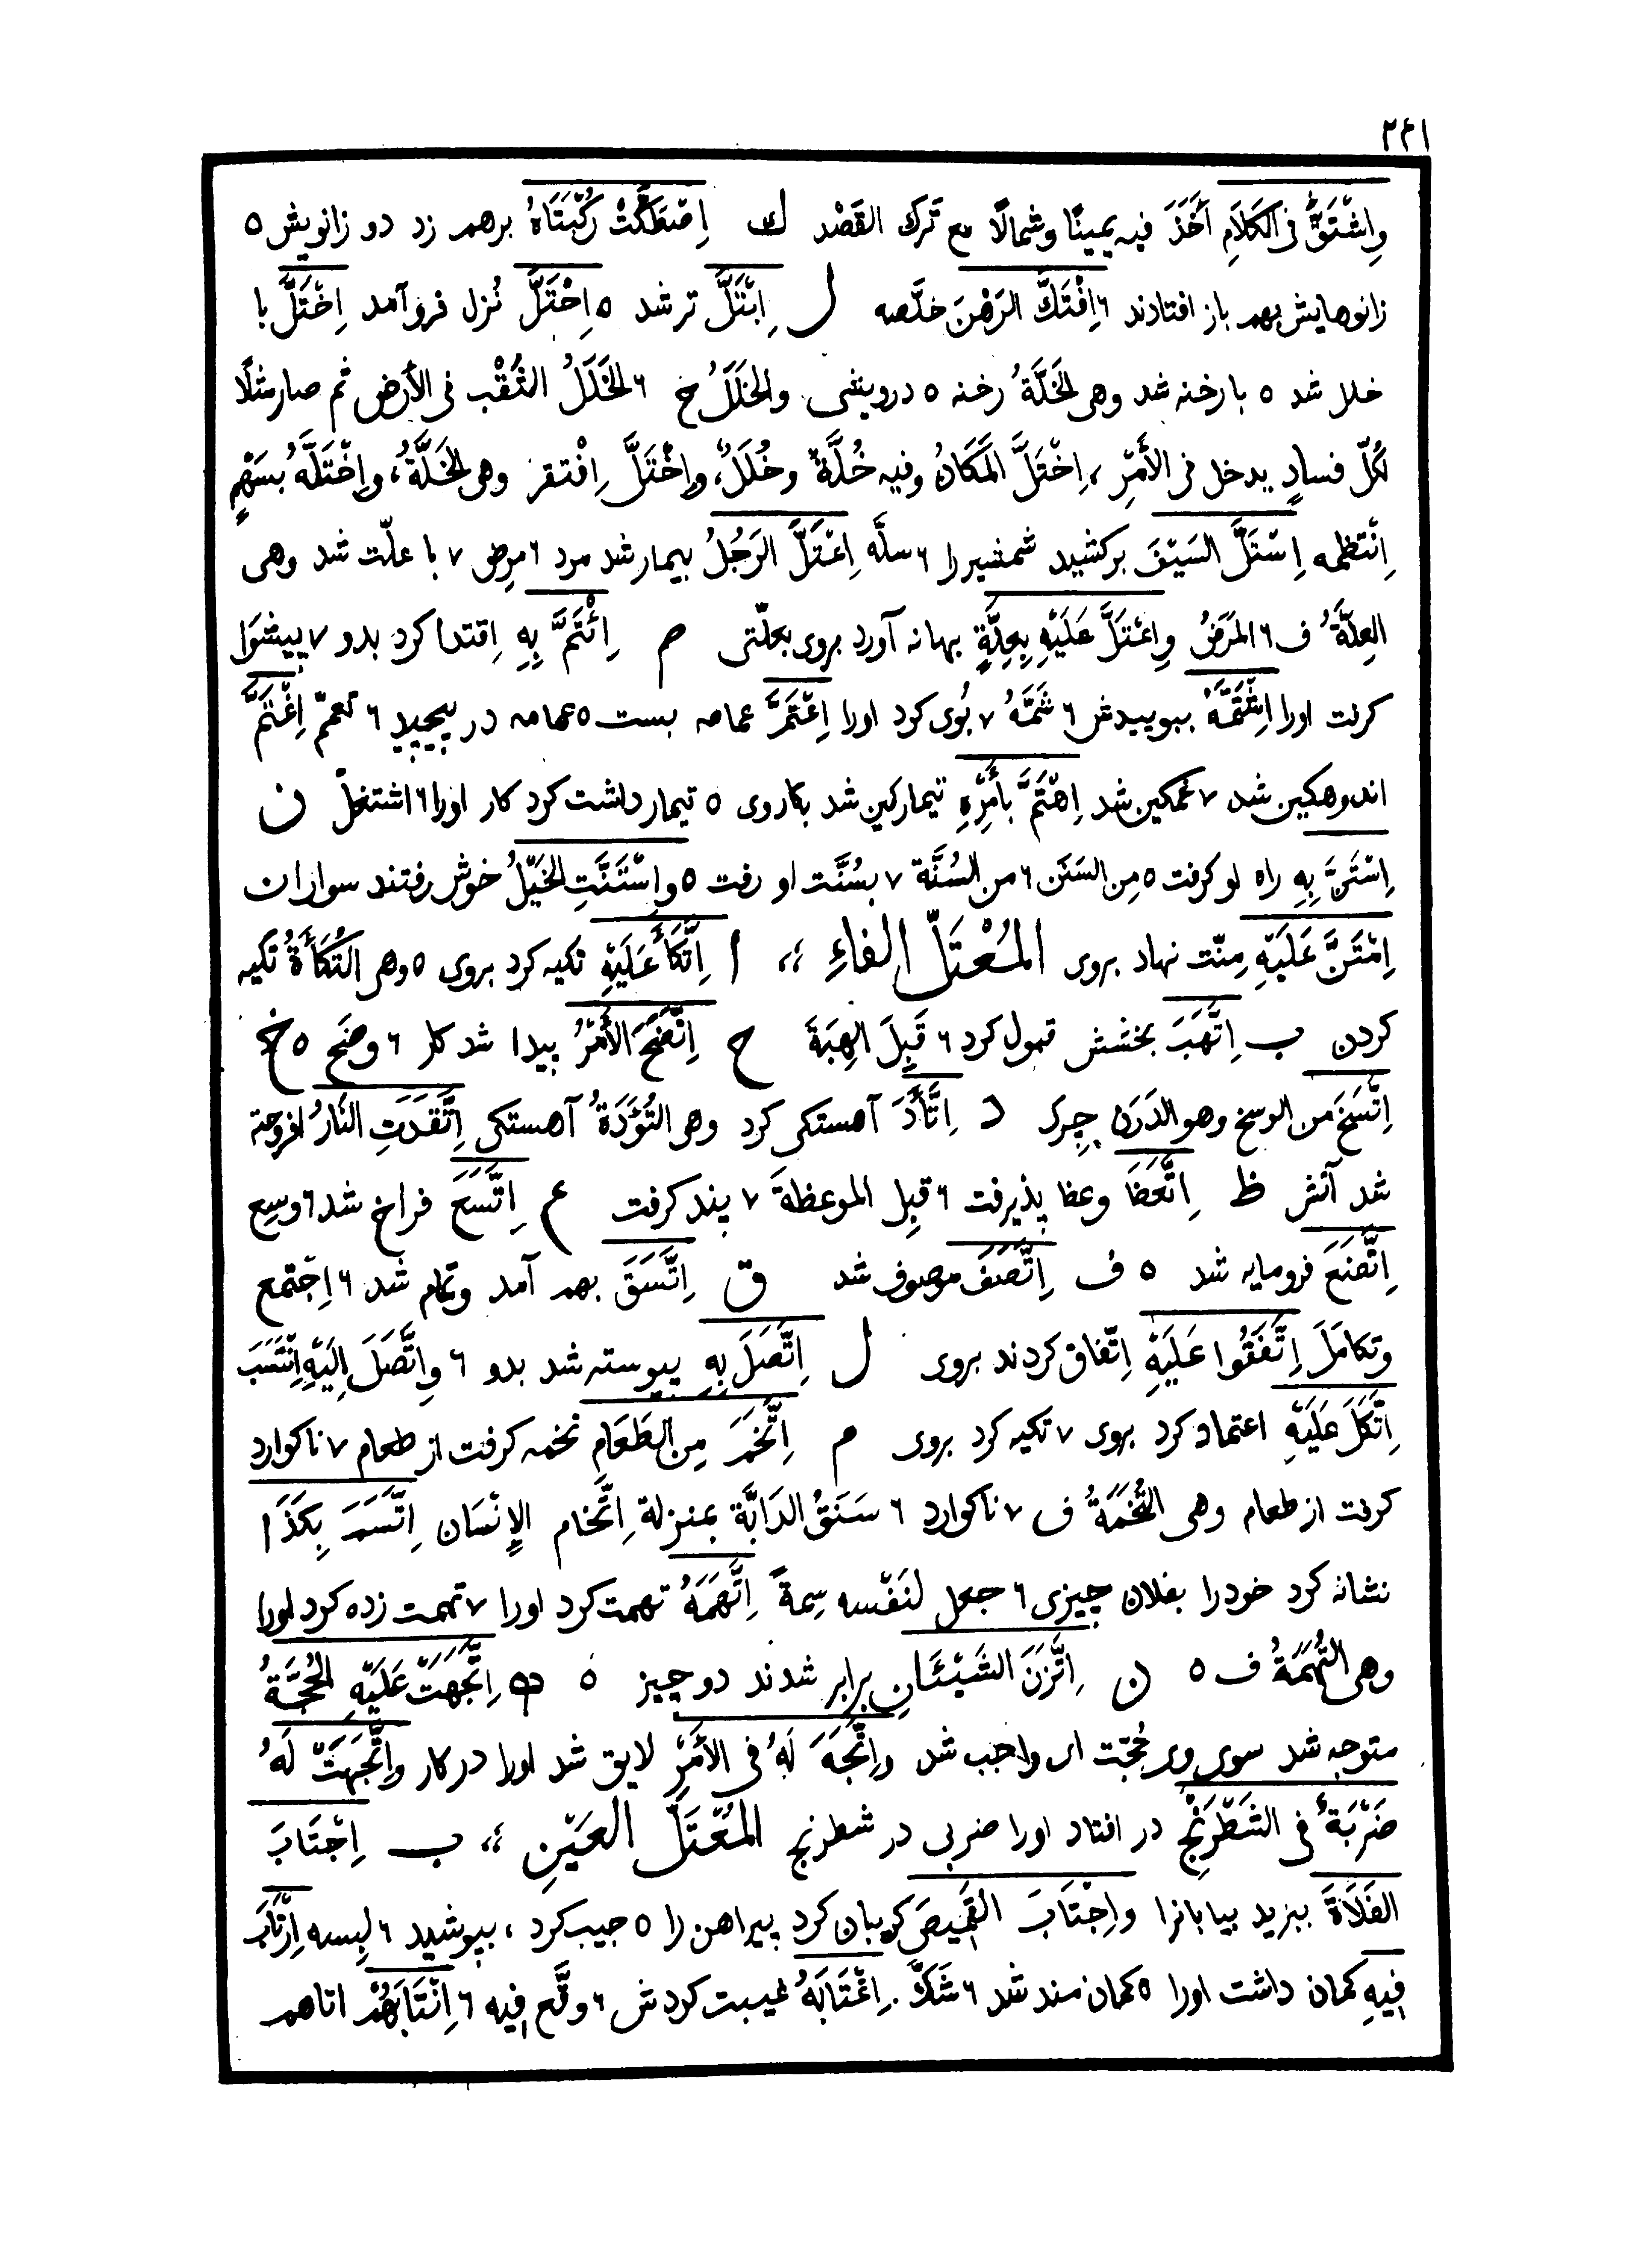 ٢٤١
وَاِشْتَقَّ فى الكَلَامِ اَخَذَ فيه يمينًا وشمالًا مع تَرك القَصْد ك اِصْطَكَّتْ رُكْبَتَاهُ برهم زد دو زانویش ٥
زانوهایش بهم باز افتادند ٦ اِفْتَكَّ الرَهْنَ خلَّصه ل اِبْتَلَّ تر شد ٥ اِحْتَلَّ نُزل فرو آمد اِخْتَلَّ با
خلل شد ٥ با رخنه شد وهى الخَلَّةُ رخنه ٥ درویشی والخَلَلُ خ ٦ الخَلَلُ الثُقْب فى الأرض ثم صار مثلًا
لكلّ فسادٍ يدخل فى الأَمْرِ، اِخْتَلَّ المَكَانُ وفيه خُلَّةٌ وخُلَلٌ، وَاِخْتَلَّ اِفْتقر وهى الخَلَّةُ، وَاِخْتَلَّهُ بسَهْمٍ
اِنْتظمه اِسْتَلَّ السَيْفَ برکشید شمشیر را ٦ سلَّه اِعْتَلَّ الرَجُلُ بیمار شد مرد ٦ مرِض ٧ با علّت شد وهى
العِلَّةُ ف ٦ المَرَضُ وَاِعْتَلَّ عَلَيْهِ بِعِلَّةٍ بهانه آورد بروی بعلّتی م اِئْتَمَّ بِهِ اِقتدا کرد بدو ٧ پیشوا
کرفت اورا اِشْتَمَّهُ ببوییدش ٦ شَمَّهُ ٧ بُوی کرد اورا اِعْتَمَّ عمامه بست ٥ عمامه در پیچید ٦ تعمّم اِغْتَمَّ
اندوهکین شد ٧ غمکین شد اِهْتَمَّ بأَمْرِهِ تیمارکین شد بکار وی ٥ تیمار داشت کرد کار اورا ٦ اشتغل ن
اِسْتَنَّ بِهِ راه او کرفت ٥ مِن السَنَن ٦ من السُنَّة ٧ بسُنَّت او رفت ٥ واِسْتَنَّتِ الخَيْلُ خوش رفتند سواران
اِمْتَنَّ عَلَيْهِ مِنّت نهاد بروی المُعْتَلّ الفاءِ ،، ا اِتَّكَأَ عَلَيْهِ تکیه کرد بروی ٥ وهى التُكَأَةُ تکیه
کردن ب اِتَّهَبَ بخشش قبول کرد ٦ قَبِلَ الهِبَةَ ح اِتَّضَحَ الأَمْرُ پیدا شد کار ٦ وضَح ٥ خ
اِتَّسَخَ من الوسخ وهو الدَرَن چرك د اِتَّأَدَ آهستکی کرد وهى التُؤَدَةُ آهستکی اِتَّقَدَتِ النَارُ افروخته
شد آتش ظ اِتَّعَظَ وعظ پذیرفت ٦ قبِل الموعظةَ ٧ پند کرفت ع اِتَّسَعَ فراخ شد ٦ وسِع
اِتَّضَعَ فرومایه شد ٥ ف اِتَّصَفَ موصوف شد ق اِتَّسَقَ بهم آمد وتمام شد ٦ اِجْتمع
وتكامَلَ اِتَّفَقُوا عَلَيْهِ اِتّفاق کردند بروی ل اِتَّصَلَ بِهِ پیوسته شد بدو ٦ وِاتَّصَلَ اِلَيْهِ اِنْتَسَبَ
اِتَّكَلَ عَلَيْهِ اعتماد کرد بروی ٧ تکیه کرد بروی م اِتَّخَمَ مِن الطَعَامِ تخمه کرفت از طعام ٧ ناکوارد
کرفت از طعام وهى التُخَمَةُ ف ٧ ناکوارد ٦ سَنَقُ الدَابَّة بمنزلة اِتِّخام الإنْسَان اِتَّسَمَ بِكَذَا
نشانه کرد خود را بفلان چیزی ٦ جعل لنَفْسه سِمةً اِتَّهَمَهُ تهمت کرد اورا ٧ تهمت زده کرد اورا
وهى التُهَمَةُ ف ٥ ن اِتَّزَنَ الشَيْئَانِ برابر شدند دو چیز ٥ ه اِتَّجَهَتْ عَلَيْهِ الحُجَّةُ
متوجه شد سوی وی حُجّت ای واجب شد وَاِتَّجَهَ لَهُ فى الأَمْرِ لایق شد اورا در کار وَاِتَّجَهَتْ لَهُ
ضَرْبَةٌ فى الشَطْرَنْجِ در افتاد اورا ضربی در شطرنج المُعْتَلّ العَيْنِ ،، ب اِجْتَابَ
الفَلَاةَ ببرید بیابانرا واِجْتَابَ القَمِيصَ کریبان کرد پیراهن را ٥ جیب کرد، بپوشید ٦ لبِسه اِرْتَابَ
فيهِ کمان داشت اورا ٥ کمان مند شد ٦ شَكَّ. اِغْتَابَهُ غیبت کردش ٦ وقَع فيه ٦ اِنْتَابَهُمْ اتاهم